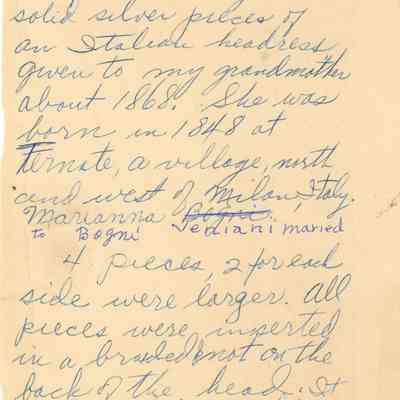 solid silver pieces of
an Italian headress
given to my grandmother
about 1868. She was
born in 1848 at
Ternate, a village, north
and west of Milan, Italy.
Marianna Bogni
to Bogni Veniani married
4 pieces, 2 for each
side were larger. All
pieces were inserted
in a braided knot on the
back of the head. It